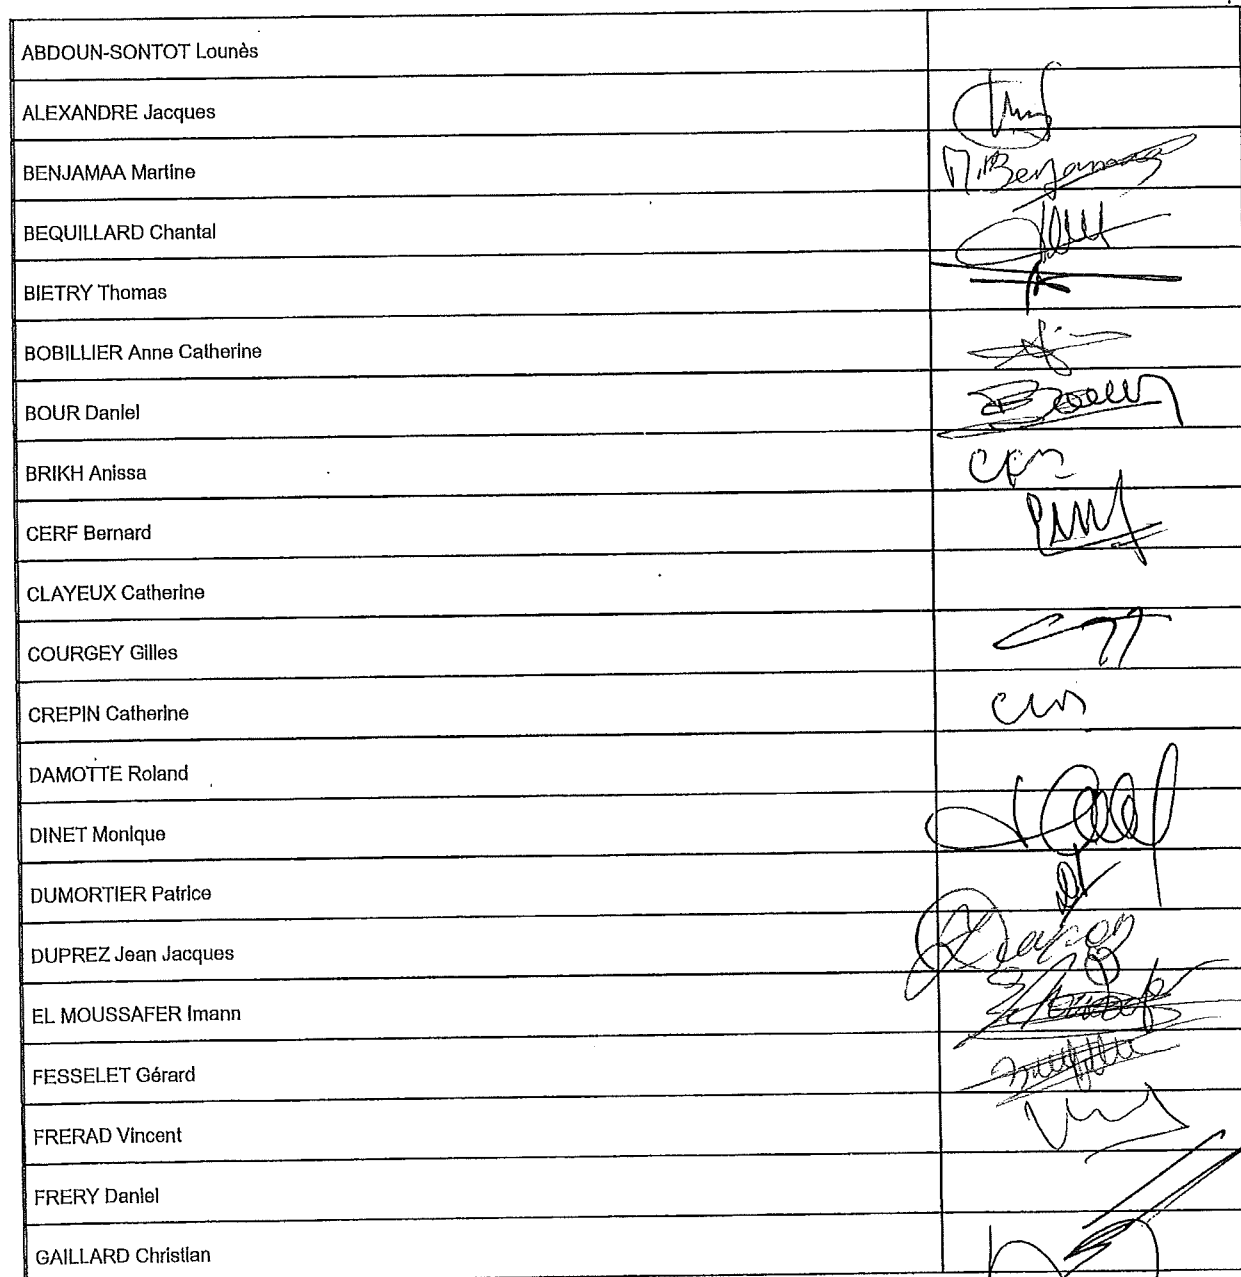 ABDOUN-SONTOT Lounès
ALEXANDRE Jacques
BENJAMAA Martine
M. Benjamaa
BEQUILLARD Chantal
BIETRY Thomas
BOBILLIER Anne Catherine
BOUR Daniel
BRIKH Anissa
CERF Bernard
CLAYEUX Catherine
COURGEY Gilles
CREPIN Catherine
DAMOTTE Roland
DINET Monique
DUMORTIER Patrice
DUPREZ Jean Jacques
EL MOUSSAFER Imann
FESSELET Gérard
FRERAD Vincent
FRERY Daniel
GAILLARD Christian